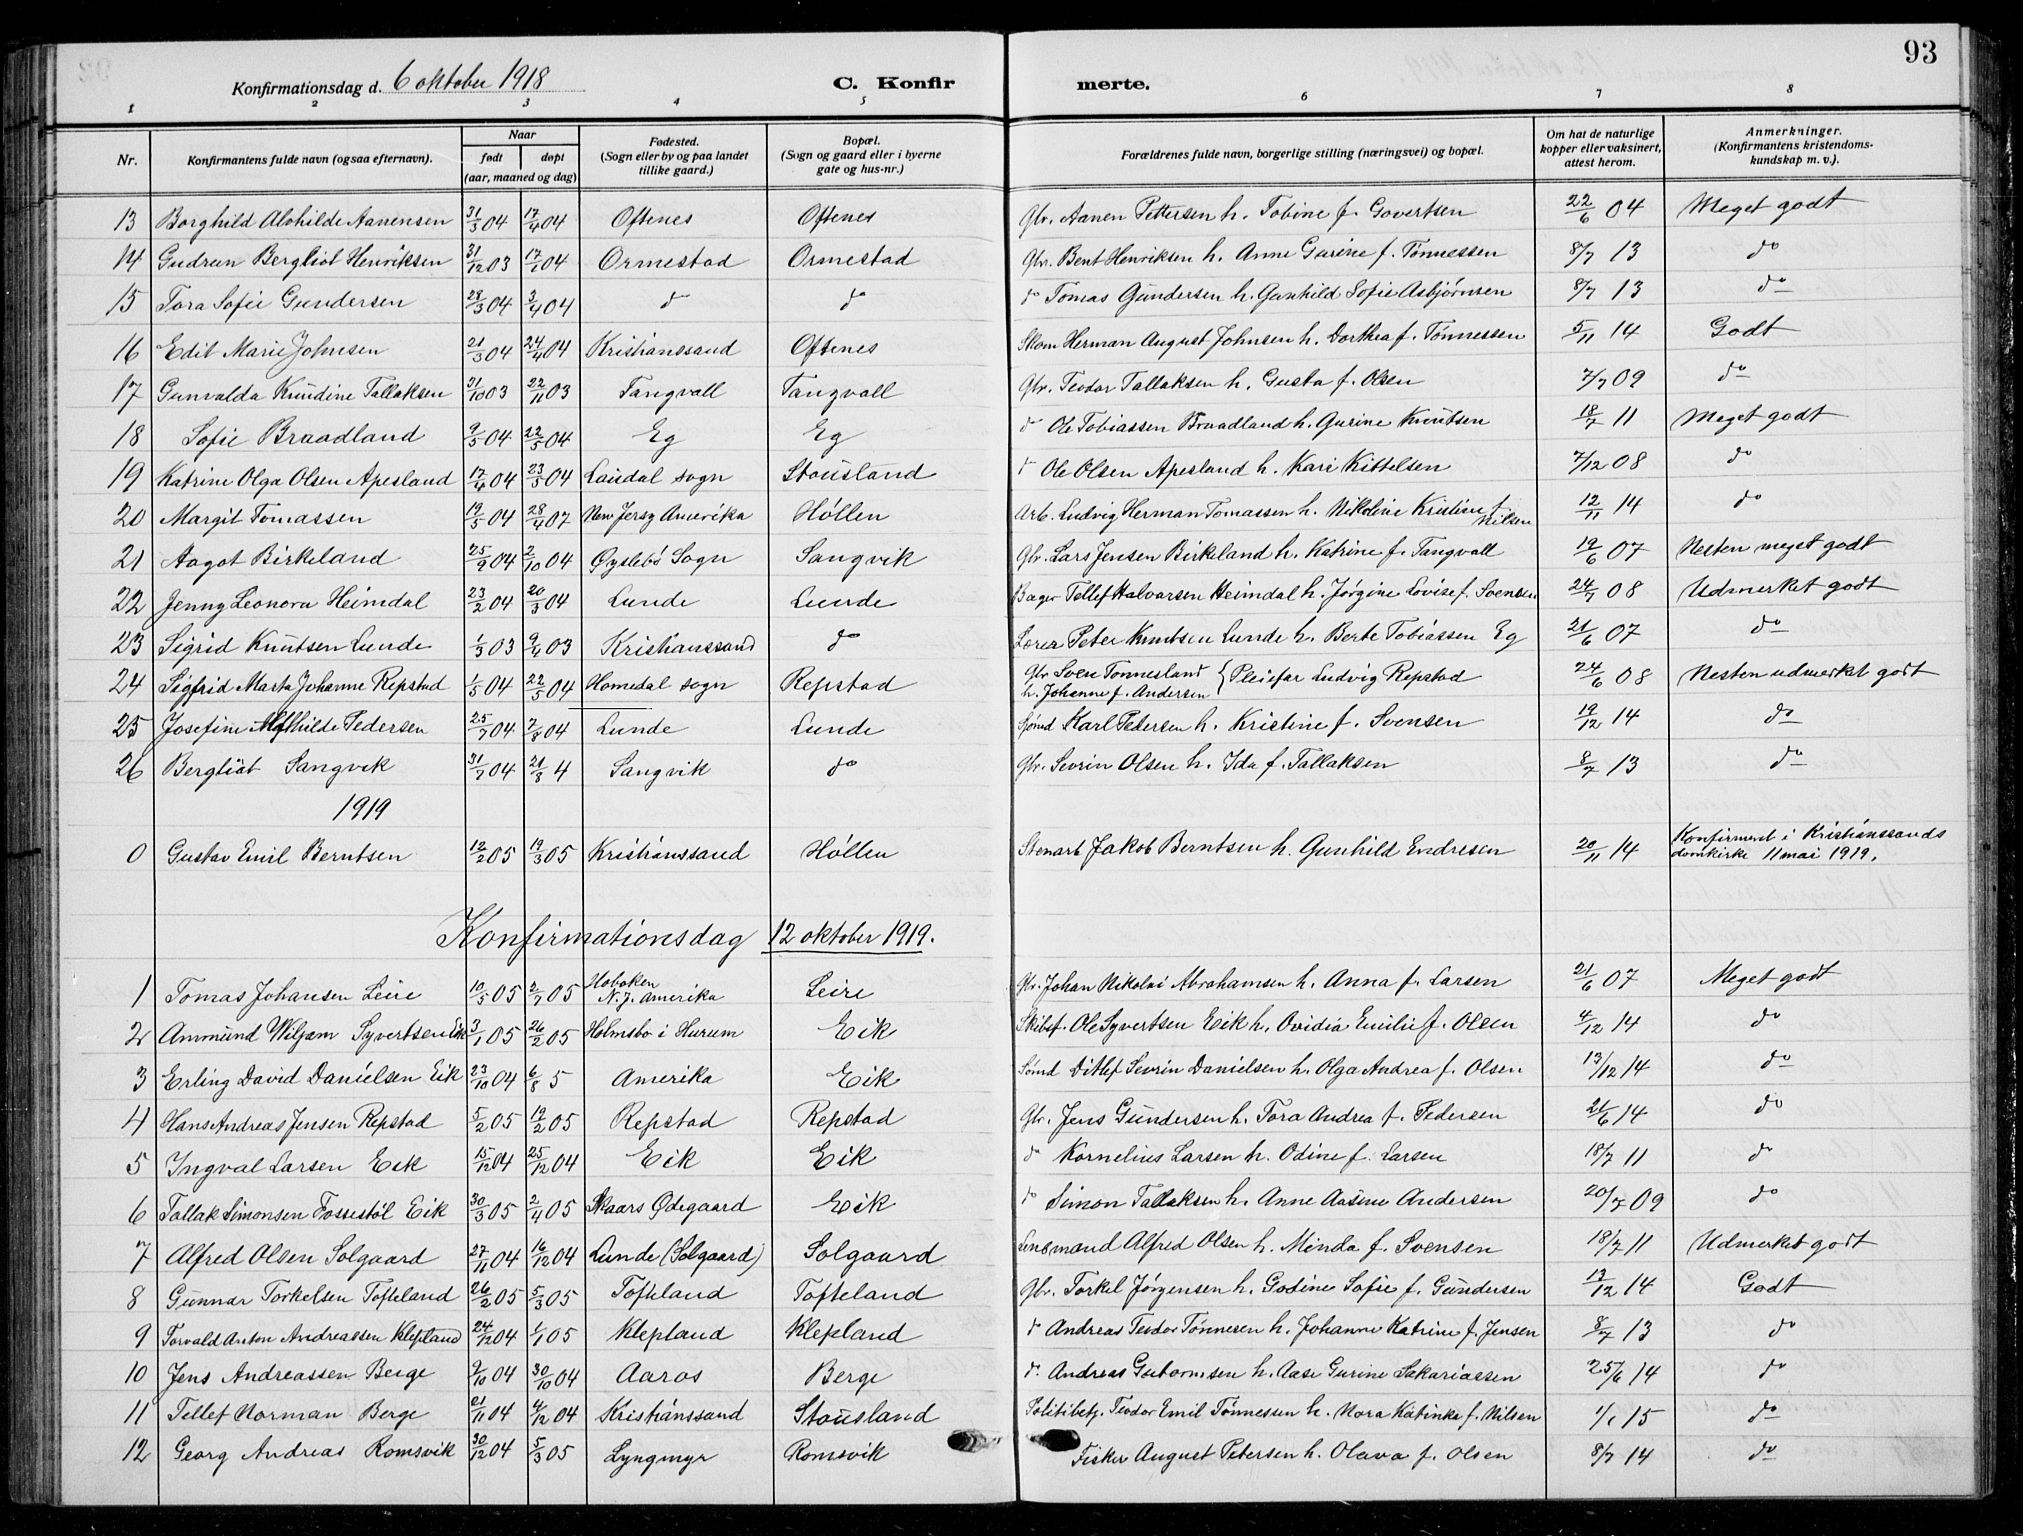 93
Konfirmationsdag d. 6 oktober 1918 C. Konfirmerte.
1 2 3 4 5 6 7 8
Nr. Konfirmantens fulde navn (ogsaa efternavn). Naar født døpt (aar, maaned og dag) Fødested. (Sogn eller by og paa landet tillike gaard.) Bopæl. (Sogn og gaard eller i byerne gate og hus-nr.) Forældrenes fulde navn, borgerlige stilling (næringsvei) og bopæl. Om hat de naturlige kopper eller vaksinert, attest herom. Anmerkninger. (Konfirmantens kristendomskundskap m. v.).
13 Borghild Alvhilde Aanensen 31/3 04 17/4 04 Oftenes Oftenes Gbr. Aanen Pettersen h. Tobine f. Govertsen 22/6 04 Meget godt
14 Gudrun Bergliot Henriksen 31/12 03 17/1 04 Ormestad Ormestad Gbr. Bent Henriksen h. Anne Gurine f. Tønnessen 8/7 13 do
15 Tora Sofie Gundersen 28/3 04 3/4 04 do do do Tomas Gundersen h. Gunhild Sofie Asbjørnsen 8/7 13 do
16 Edit Marie Johnsen 21/3 04 24/4 04 Kristianssand Oftenes Skom Herman August Johnsen h. Dorthea f. Tønnessen 5/11 14 Godt
17 Gunvalda Knudine Tallaksen 31/10 03 22/11 03 Tangvall Tangvall Gbr. Teodor Tallaksen h. Gusta f. Olsen 7/7 09 do
18 Sofie Braadland 9/5 04 22/5 04 Eg Eg do Ole Tobiassen Braadland h. Gurine Knutsen 18/7 11 Meget godt
19 Katrine Olga Olsen Apesland 17/4 04 23/5 04 Laudal sogn Stousland do Ole Olsen Apesland h. Kari Kittelsen 7/12 08 do
20 Margit Tomassen 19/5 04 28/4 07 New Jersy Amerika Høllen Arb. Ludvig Herman Tomassen h. Nikoline Kristine f. Nilsen 12/11 14 do
21 Aagot Birkeland 25/9 04 2/10 04 Øyslebø Sogn Sangvik Gbr. Lars Jensen Birkeland h. Katrine f. Tangvall 19/6 07 Nesten meget godt
22 Jenny Leonora Heimdal 23/2 04 20/3 04 Lunde Lunde Bager Tellef Halvarsen Heimdal h. Jørgine Lovise f. Svensen 24/7 08 Udmerket godt
23 Sigrid Knutsen Lunde 1/3 03 9/4 03 Kristianssand do Lærer Peter Knutsen Lunde h. Berte Tobiassen Eg 21/6 07 do
24 Sigfrid Marta Johanne Repstad 1/5 04 22/5 04 Homedal sogn Repstad Gbr Sven Tonnesland h. Johanne f. Andersen { Pleiefar Ludvig Repstad 24/6 08 Nesten udmerket godt
25 Josefine Mathilde Pedersen 25/7 04 7/8 04 Lunde Lunde Sjømd Karl Pedersen h. Kristine f. Svensen 19/12 14 do
26 Bergliot Sangvik 31/7 04 21/8 4 Sangvik do Gbr. Sevrin Olsen h. Ida f. Tallaksen 8/7 13 do
1919
0 Gustav Emil Berntsen 12/2 05 19/3 05 Kristianssand Høllen Stenarb Jakob Berntsen h. Gunhild Endresen 20/11 14 Konfirmert i Kristianssands domkirke 11 mai 1919.
Konfirmationsdag 12 oktober 1919.
1 Tomas Johansen Leire 10/5 05 2/7 05 Hoboken N. J. Amerika Leire Gbr. Johan Nikolai Abrahamsen h. Anna f. Larsen 21/6 07 Meget godt
2 Ammund Wiljam Syvertsen Eik 3/1 05 26/2 05 Holmsbo i Hurum Eik Skibsf. Ole Syvertsen Eik h. Ovidia Emilie f. Olsen 4/12 14 do
3 Erling David Danielsen Eik 23/10 04 6/8 5 Amerika Eik Sømd Ditlef Sevrin Danielsen h. Olga Andrea f. Olsen 13/12 14 do
4 Hans Andreas Jensen Repstad 5/2 05 19/2 05 Repstad Repstad Gbr. Jens Gundersen h. Tora Andrea f. Pedersen 21/6 14 do
5 Ingval Larsen Eik 15/12 04 25/12 04 Eik Eik do Kornelius Larsen h. Odine f. Larsen 18/7 11 do
6 Tallak Simonsen Fossestøl Eik 30/3 05 2/4 05 Skaars Ødegaard Eik do Simon Tallaksen h. Anne Aasine Andersen 20/7 09 do
7 Alfred Olsen Solgaard 27/11 04 16/12 04 Lunde (Solgaard) Solgaard Lensmand Alfred Olsen h. Minda f. Svensen 18/7 11 Udmerket godt
8 Gunnar Torkelsen Tofteland 26/2 05 5/3 05 Tofteland Tofteland Gbr. Torkel Jørgensen h. Godine Sofie f. Gundersen 13/12 14 Godt
9 Torvald Anton Andreassen Klepland 24/12 04 1/1 05 Klepland Klepland do Andreas Teodor Tønnesen h. Johanne Katrine f. Jensen 8/7 13 do
10 Jens Andreassen Berge 9/10 04 30/10 04 Aaros Berge do. Andreas Guttormsen h. Aase Gurine Sakariassen 25/6 14 do
11 Tellef Norman Berge 21/11 04 4/12 04 Kristianssand Stousland Politibetj. Teodor Emil Tønnessen h. Nora Katinka f. Nilsen 1/1 15 do
12 Georg Andreas Romsvik 30/12 04 5/3 05 Lyngmyr Romsvik Fisker August Petersen h. Olava f. Olsen 8/7 14 do